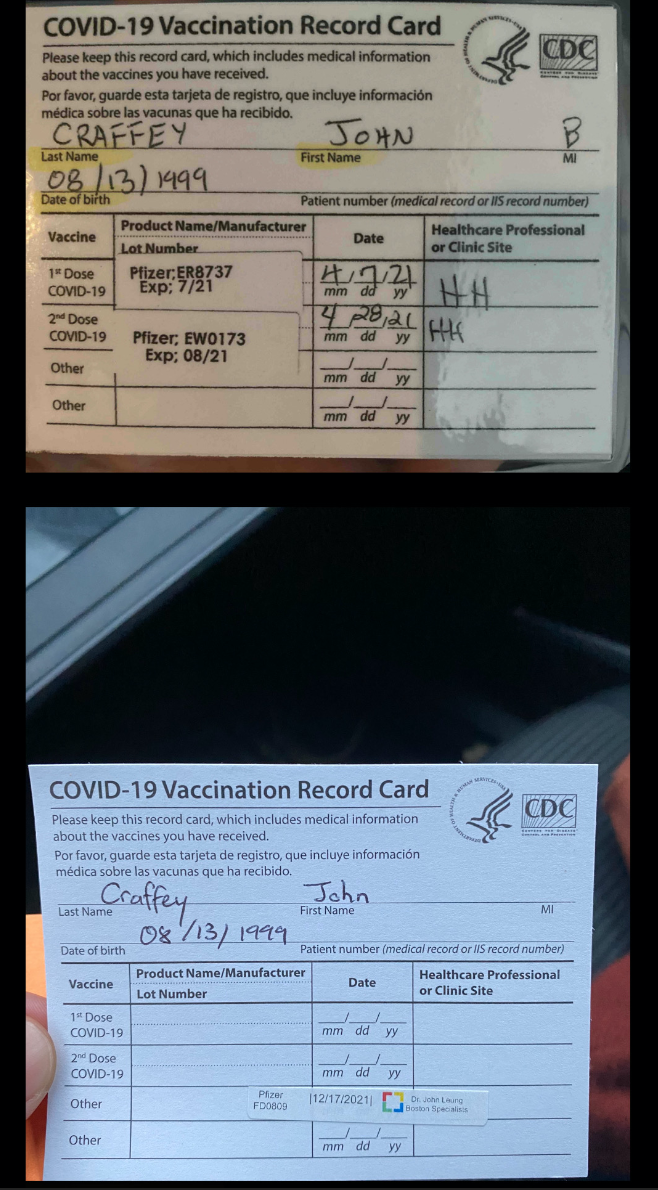 COVID-19 Vaccination Record Card
Please keep this record card, which includes medical information
about the vaccines you have received.
Por favor, guarde esta tarjeta de registro, que incluye información
médica sobre las vacunas que ha recibido.
CDC
CRAFFEY JOHN B
Last Name First Name MI
08/13/1999
Date of birth Patient number (medical record or IIS record number)
Vaccine Product Name/Manufacturer Date Healthcare Professional
Lot Number or Clinic Site
1st Dose Pfizer;ER8737 4/7/21 HH
COVID-19 Exp; 7/21 mm dd yy
2nd Dose 4/28/21 HH
COVID-19 Pfizer; EW0173 mm dd yy
Exp; 08/21
Other mm dd yy
Other mm dd yy
COVID-19 Vaccination Record Card
Please keep this record card, which includes medical information
about the vaccines you have received.
Por favor, guarde esta tarjeta de registro, que incluye información
médica sobre las vacunas que ha recibido.
CDC
Craffey John
Last Name First Name MI
08/13/1999
Date of birth Patient number (medical record or IIS record number)
Vaccine Product Name/Manufacturer Date Healthcare Professional
Lot Number or Clinic Site
1st Dose
COVID-19 mm dd yy
2nd Dose
COVID-19 mm dd yy
Other Pfizer |12/17/2021| Dr. John Leung
FD0809 Boston Specialists
Other mm dd yy